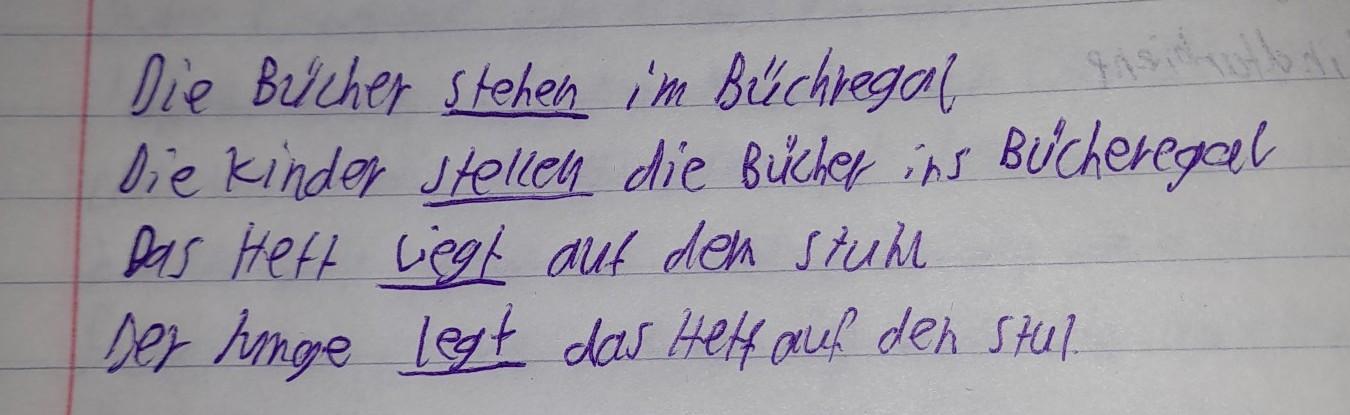 Die Bücher stehen im Büchregal
Die Kinder stellen die Bücher ins Bücheregal
Das Heft liegt auf dem Stuhl
Der Junge legt das Heft auf den Stul.